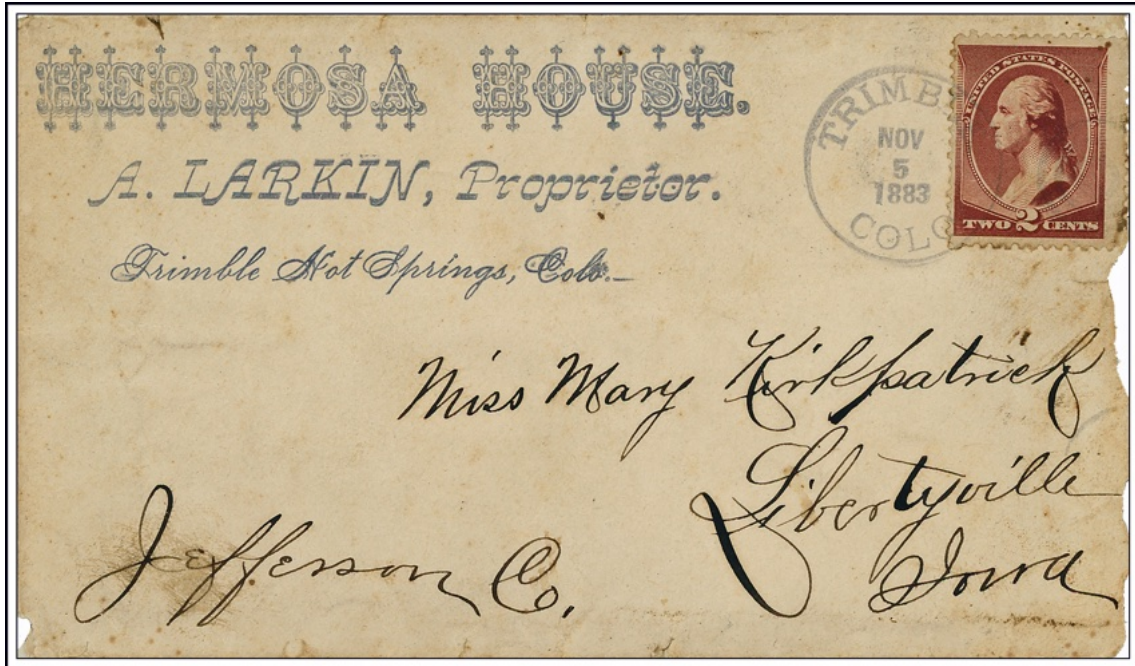 HERMOSA HOUSE.
A. LARKIN, Proprietor.
Trimble Hot Springs, Colo.
TRIMB
NOV
5
1883
COLO
UNITED STATES POSTAGE
TWO 2 CENTS
Miss Mary Kirkpatrick
Libertyville
Iowa
Jefferson Co.